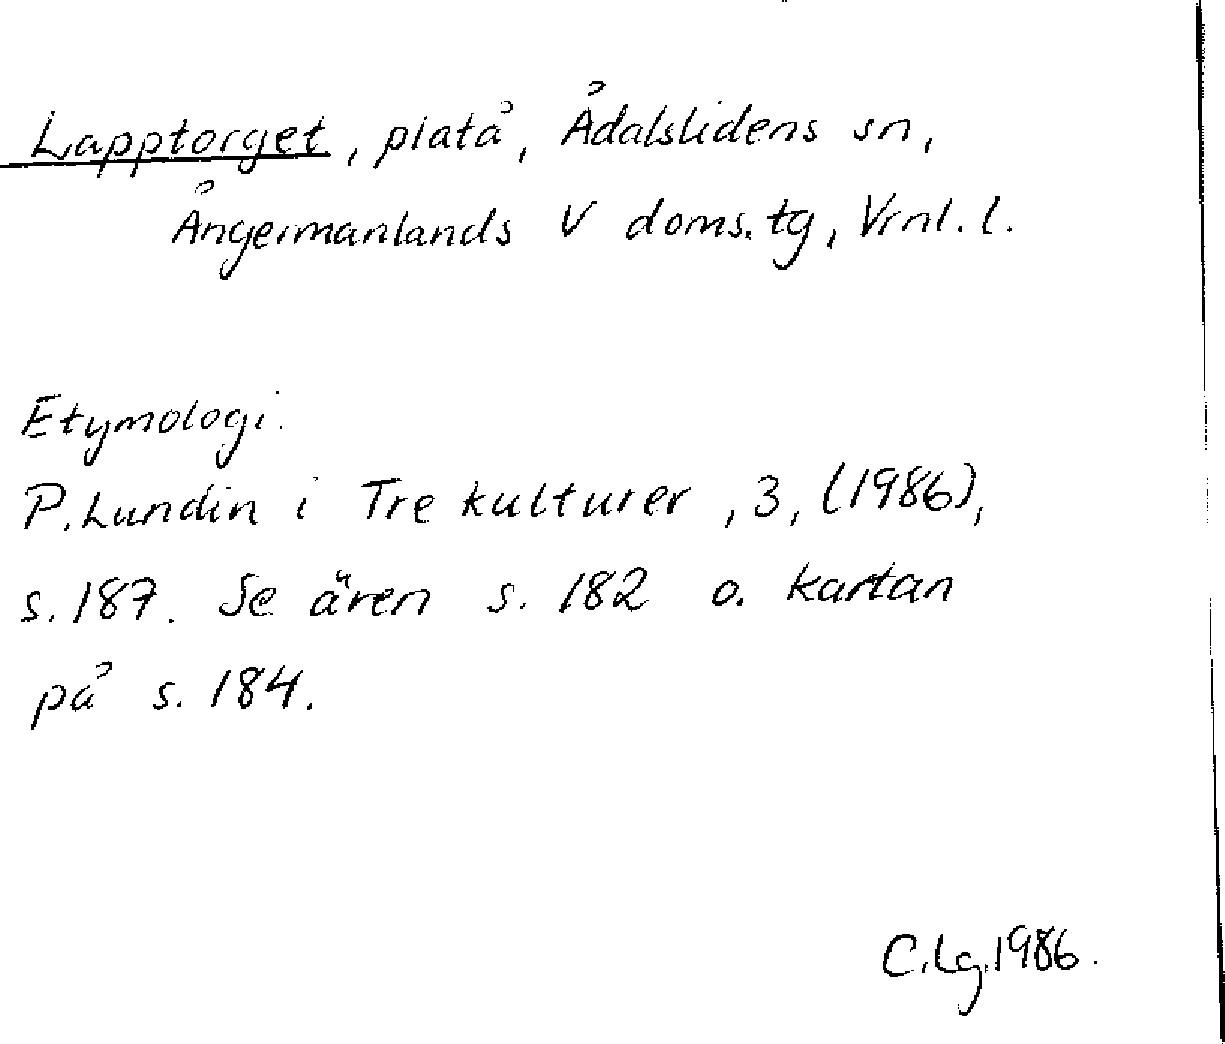 Lapptorget, platå, Ådalslidens sn,
Ångermanlands V doms.tg, Vrnl. l.
Etymologi.
P. Lundin i Tre kulturer, 3, (1986),
s. 187. Se även s. 182 o. kartan
på s. 184.
C.Lg.1986.